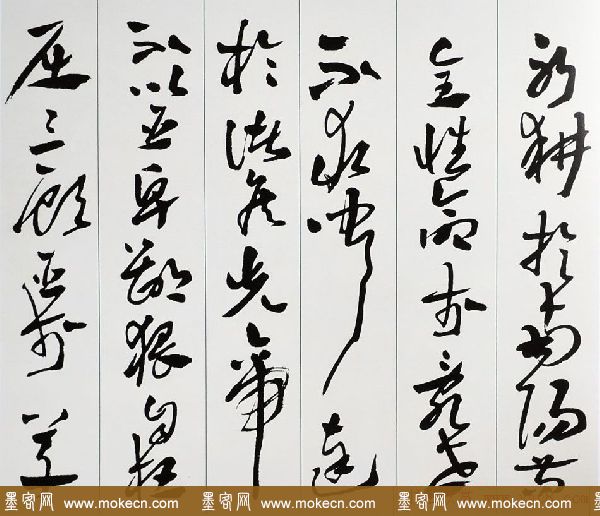 躬耕於南陽苟
全性命於亂世
不求聞達
於諸侯先帝
不以臣卑鄙猥自枉
屈三顧臣於草
墨客网 www.mokecn.com 墨客网 www.mokecn.com 墨客网 www.mokecn.com